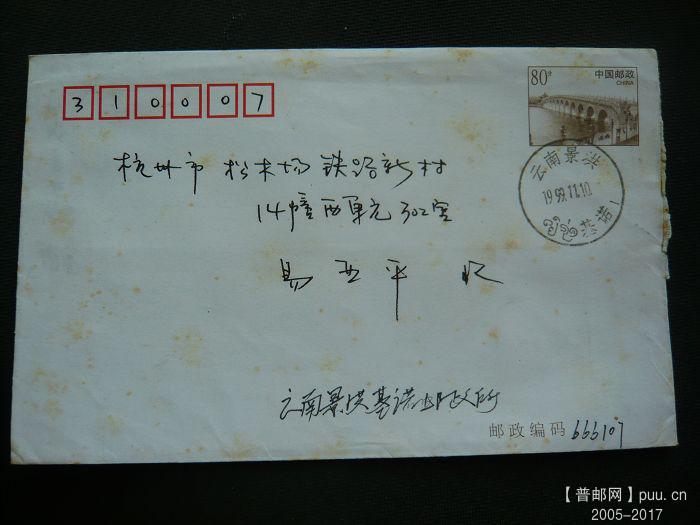 310007
80分
中国邮政
CHINA
杭州市 松木场 铁路新村
14幢西单元302室
易亚平 收
云南景洪
1999.11.10
基诺
云南景洪基诺邮政所
邮政编码 666107
【普邮网】puu.cn
2005-2017